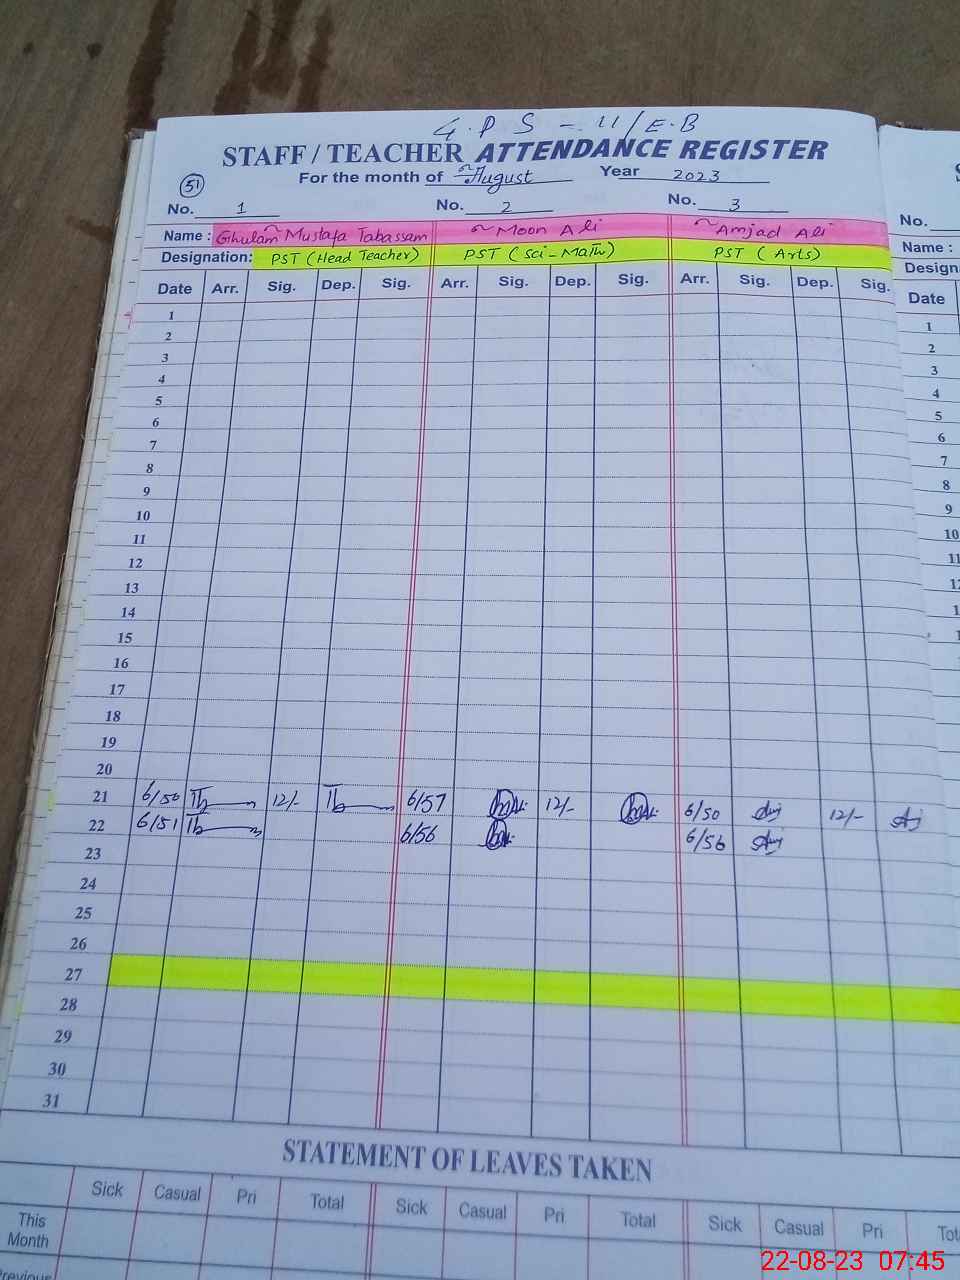 G.P S - 11/E.B
STAFF / TEACHER ATTENDANCE REGISTER
51 For the month of August Year 2023
No. 1 No. 2 No. 3 No.
Name : Ghulam Mustafa Tabassam Moon Ali Amjad Ali Name :
Designation: PST (Head Teacher) PST (Sci-Math) PST (Arts) Design
Date Arr. Sig. Dep. Sig. Arr. Sig. Dep. Sig. Arr. Sig. Dep. Sig. Date
1 1
2 2
3 3
4 4
5 5
6 6
7 7
8 8
9 9
10 10
11 11
12 12
13
14
15
16
17
18
19
20
21 6/50 12/- 6/57 12/- 6/50 12/-
22 6/51 6/56 6/56
23
24
25
26
27
28
29
30
31
STATEMENT OF LEAVES TAKEN
Sick Casual Pri Total Sick Casual Pri Total Sick Casual Pri Tot
This
Month
Previous
22-08-23 07:45